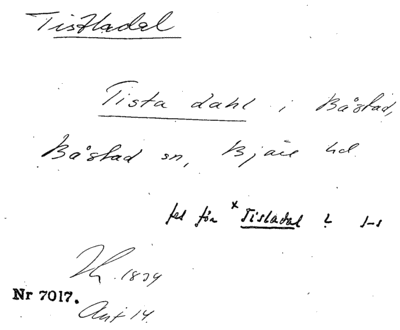 Tistladal
Tista dahl i Båstad,
Båstad sn, Bjäre hd
fel för *Tisladal ?
1879
Nr 7017.
Ant 14.